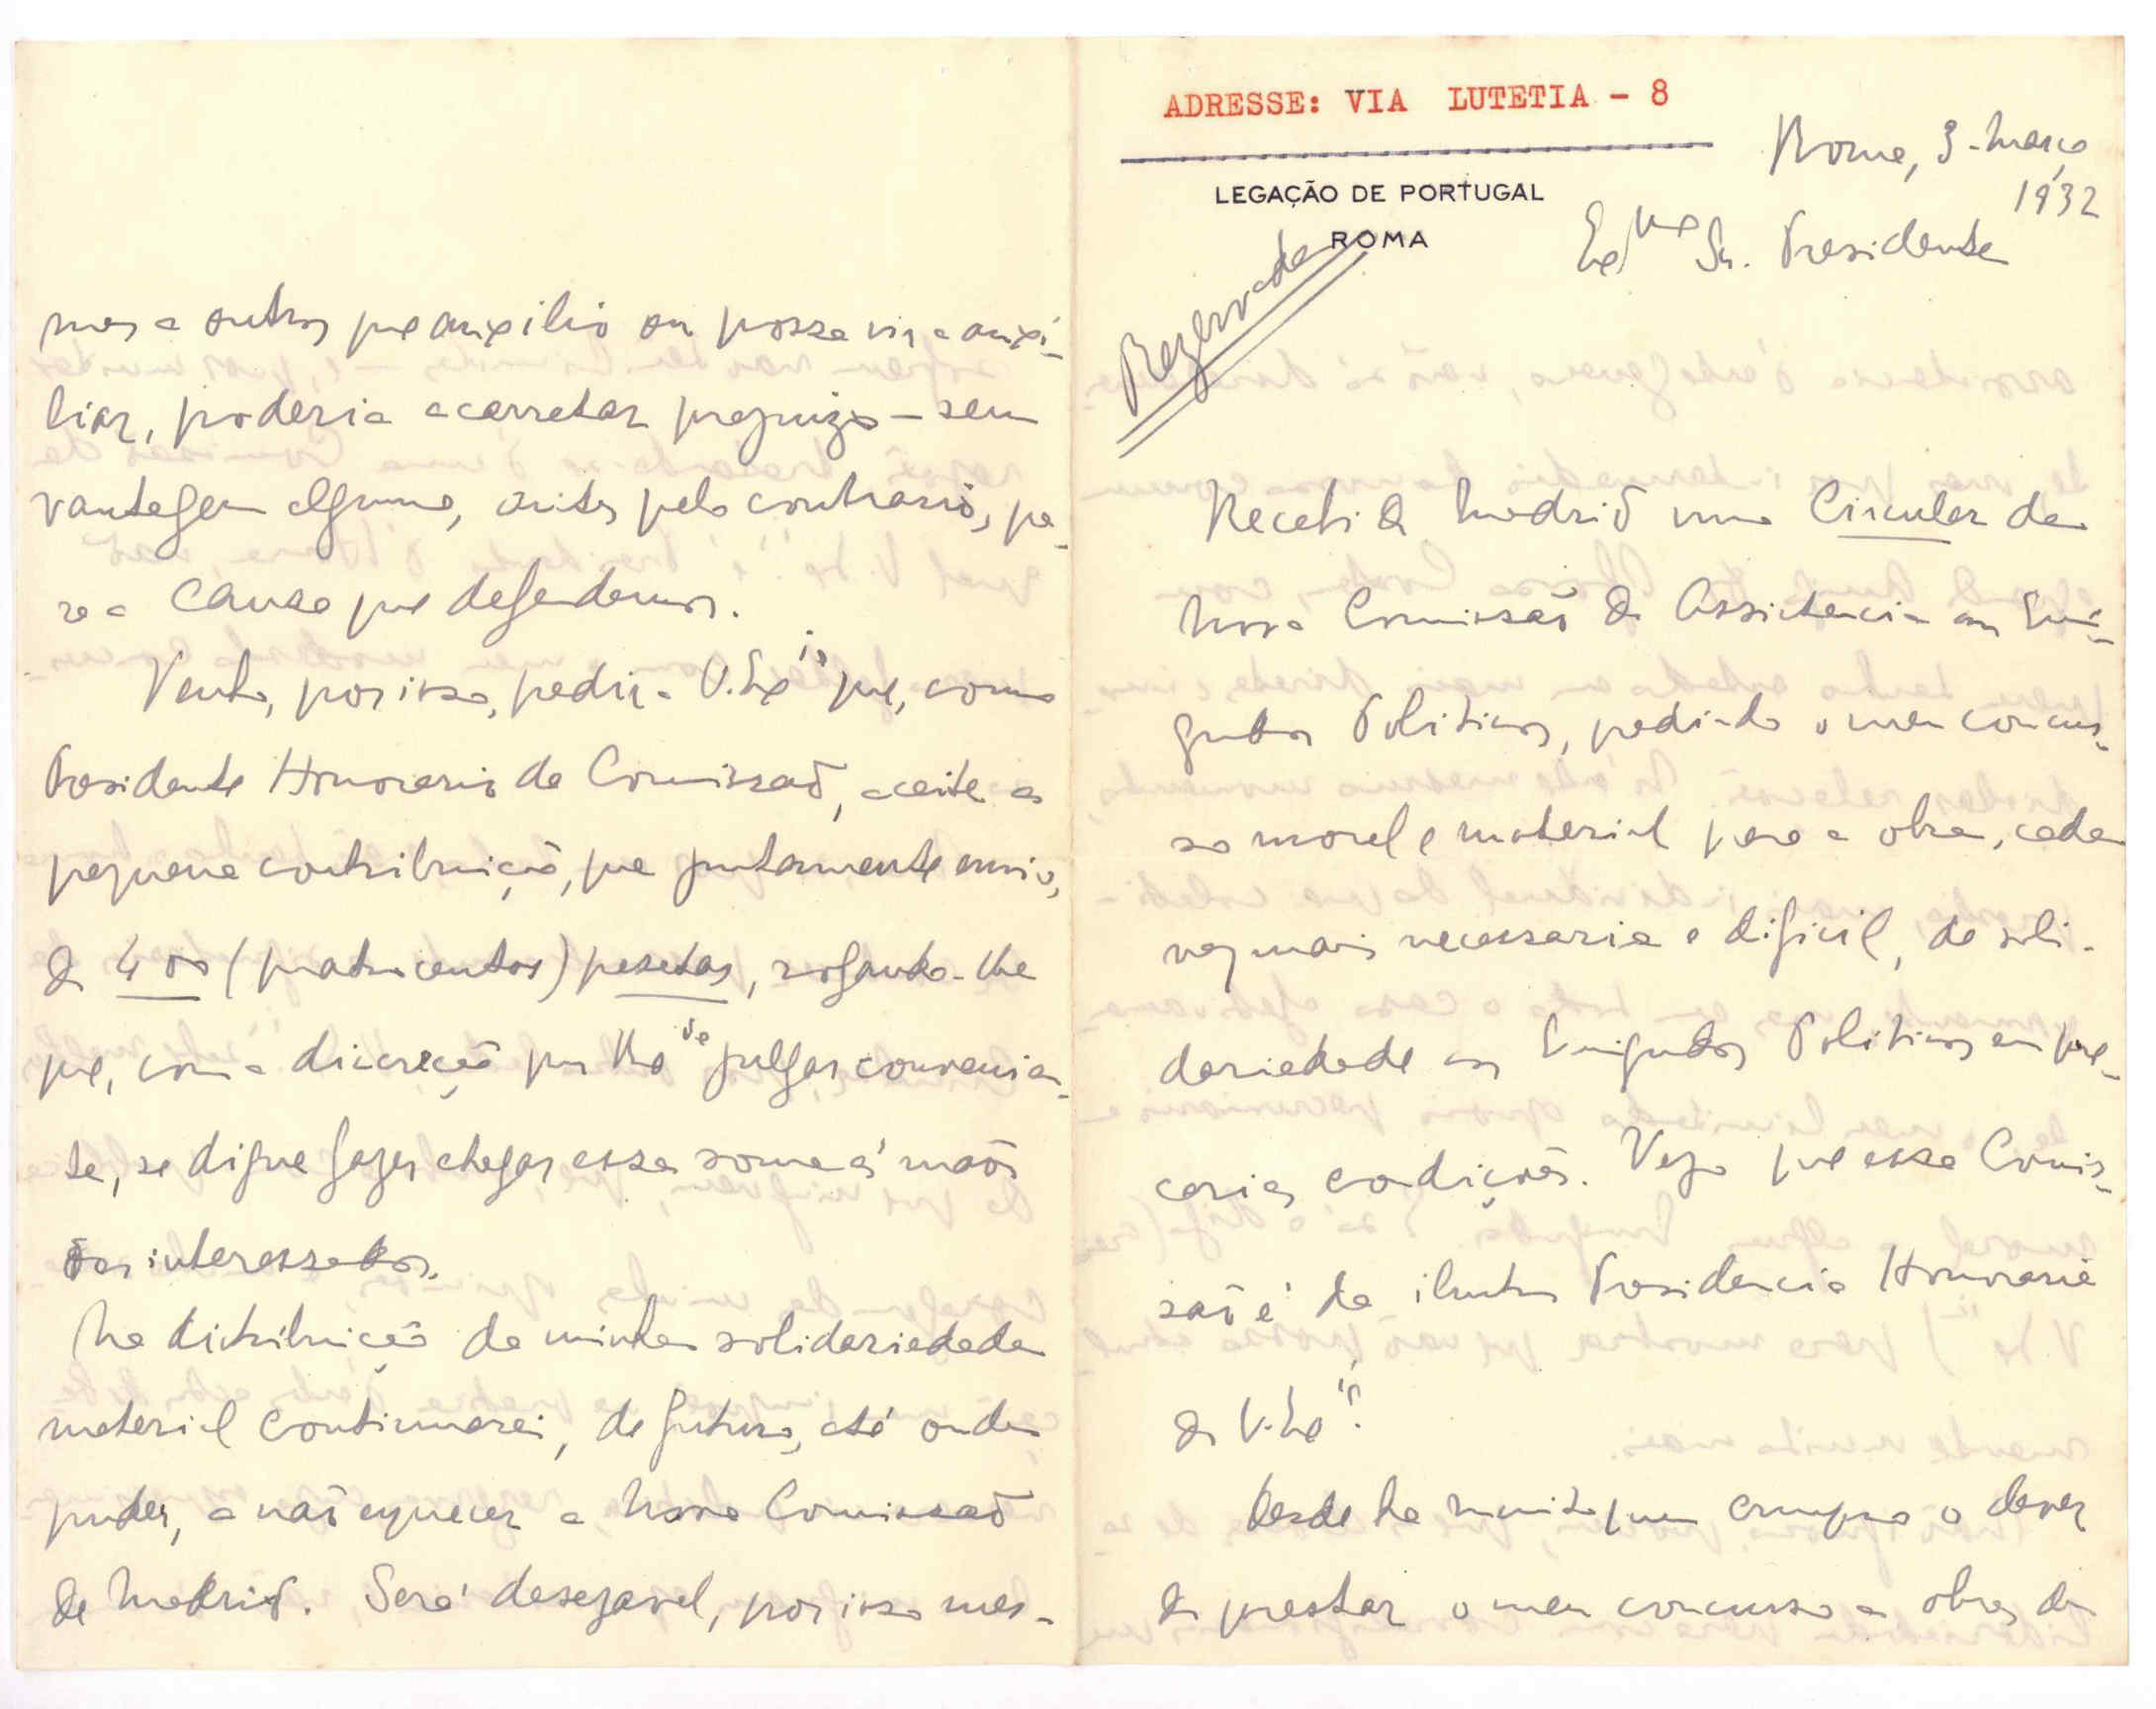 ADRESSE: VIA LUTETIA - 8
LEGAÇÃO DE PORTUGAL
ROMA
Rezervada
Roma, 3-Março
1932
Exmo Sr. Presidente
Recebi de Madrid uma Circular da
Nova Comissaõ de Assistencia aos Emi-
grados Politicos, pedindo o meu concur-
so moral e material para a obra, cada
vez mais necessaria e dificil, de soli-
dariedade aos Emigrados Politicos em pre-
carias condições. Vejo que essa Comis-
saõ é da ilustre Presidencia Honoraria
de V. Exia.
Desde ha muito que cumpro o dever
de prestar o meu concurso a obras de
mos a outros que auxilio ou possa vir a auxi-
liar, poderia acarretar prejuizo – sem
vantagem alguma, antes pelo contrario, pa-
ra a causa que defendemos.
Venho, por isso, pedir a V. Exia que, como
Presidente Honorario da Comissaõ, aceite a
pequena contribuição, que juntamente envio,
de 400 (quatrocentas) pesetas, rogando-lhe
que, com a discreção que V. Exia julgar convenien-
te, se digne fazer chegar essa soma ás maõs
dos interessados.
Na distribuição da minha solidariedade
material continuarei, de futuro, até onde
puder, a naõ esquecer a Nova Comissaõ
de Madrid. Será desejavel, por isso mes-